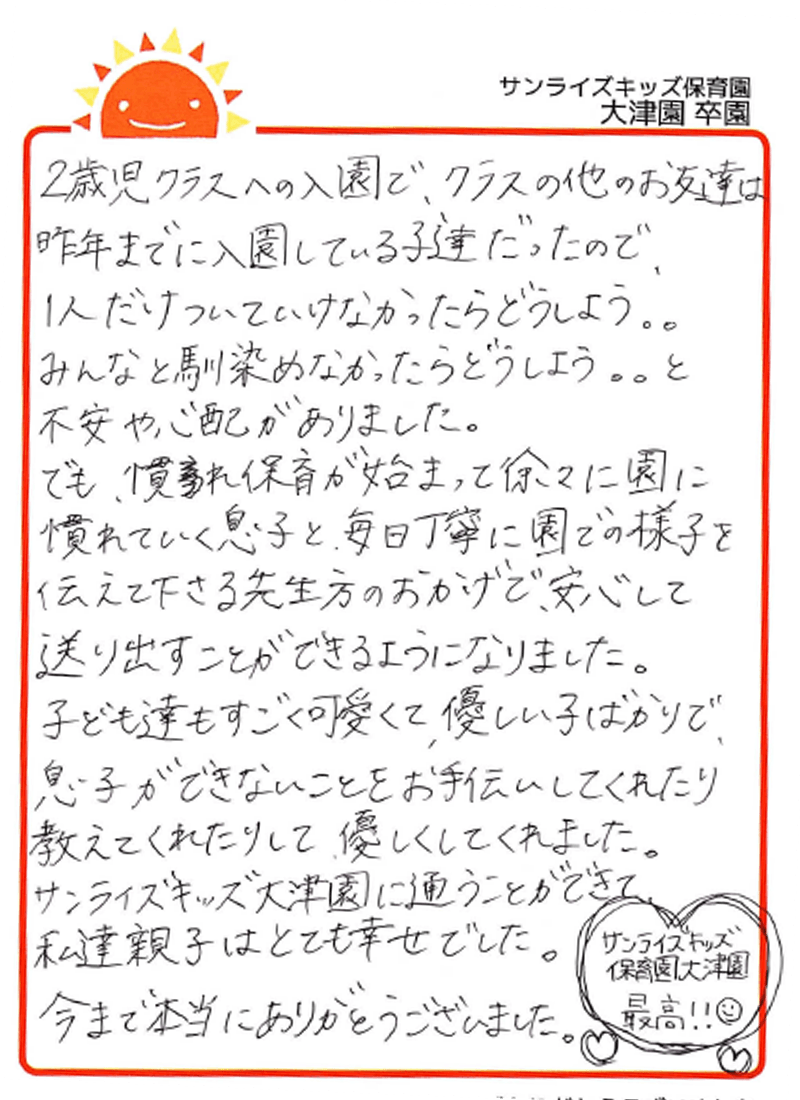 サンライズキッズ保育園
大津園 卒園
2歳児クラスへの入園で、クラスの他のお友達は
昨年までに入園している子達だったので、
1人だけついていけなかったらどうしよう。。
みんなと馴染めなかったらどうしよう。。と
不安や心配がありました。
でも、慣れ保育が始まって徐々に園に
慣れていく息子と、毎日丁寧に園での様子を
伝えて下さる先生方のおかげで、安心して
送り出すことができるようになりました。
子ども達もすごく可愛くて、優しい子ばかりで、
息子ができないことをお手伝いしてくれたり
教えてくれたりして、優しくしてくれました。
サンライズキッズ大津園に通うことができて、
私達親子はとても幸せでした。
今まで本当にありがとうございました。
サンライズキッズ
保育園大津園
最高!!